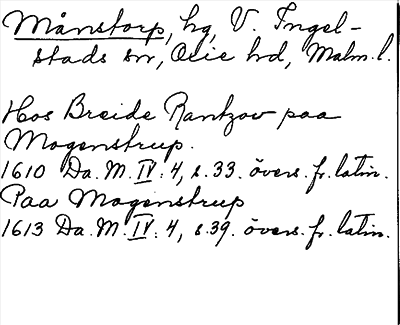 Månstorp, hg, V. Ingel-
stads sn, Oxie hd, Malm. l.
Hos Breide Rantzov paa
Mogenstrup.
1610 Da. M. IV: 4, s. 33. övers. fr. latin.
Paa Mogenstrup
1613 Da. M. IV: 4, s. 39. övers. fr. latin.